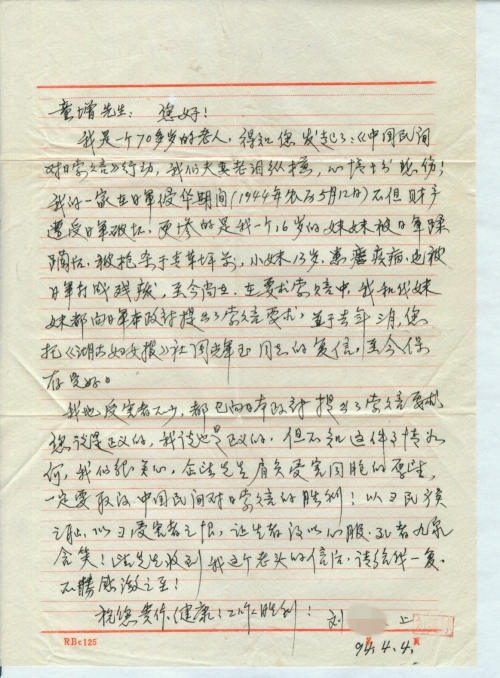 童增先生：您好！
我是一个70多岁的老人，得知您发起了《中国民间
对日索赔》行动，我们夫妻老泪纵横，心情十分悲伤！
我的一家在日军侵华期间（1944年农历5月12日）不但财产
遭受日军破坏，更惨的是我一个16岁的妹妹被日军蹂
躏后，被枪杀于去草坪，小妹13岁，患疾病，也被
日军打成残，至今尚在，在要求索赔中，我和我妹
妹都向日本政府提出了索赔要求，并于去年三月，您
托《湖南妇女报》社同志的复信，至今保
存完好。
我地受害者不少，都已向日本政府提出了索赔要求
您说是正义的，我说也是正义的，但不知这件事情如
何，我们很关心，企望先生肩负受害同胞的厚望，
一定要取得中国民间对日索赔的胜利！以民族
之耻，以受害者之恨，让生者以心服，死者九泉
含笑！先生收到我这个老头的信后，请给我一复，
不胜感激之至！
祝您贵体健康！工作胜利！
刘 上
94.4.4.
RBc126
页